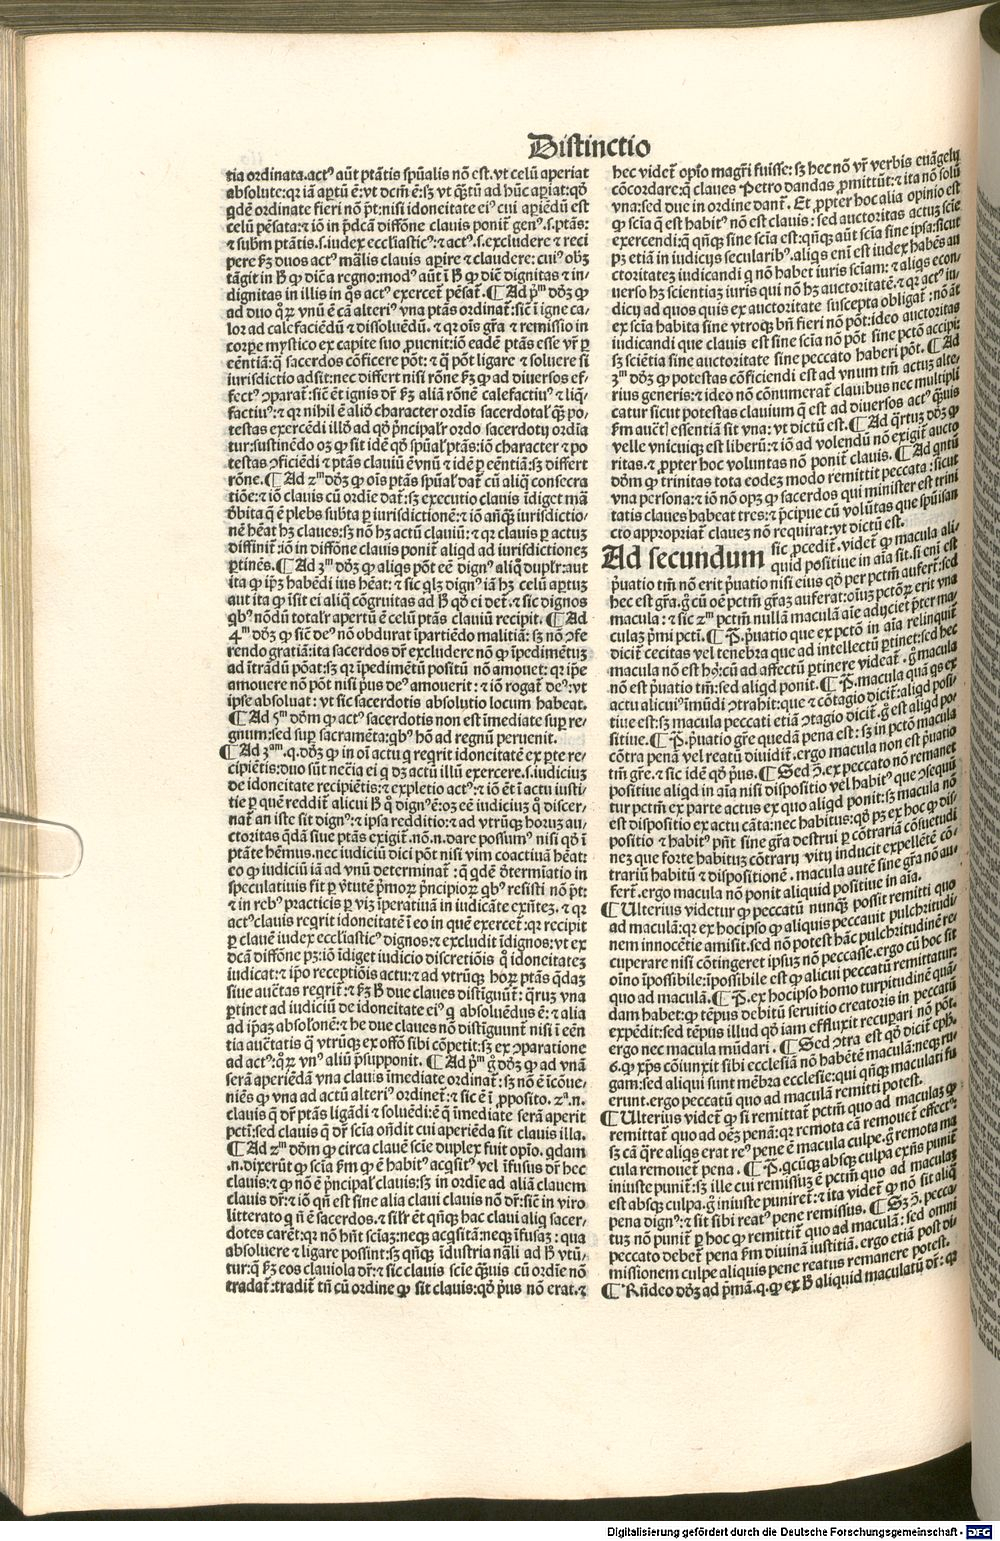 Distinctio
tia ordinata.actꝰ aūt ptātis spūalis nō est.vt celū aperiat
absolute:qr iā aꝑtū ē:vt dcm̄ ē:sꝫ vt q̄tū ad hūc aꝑiat:qō
qdē ordinate fieri nō pt̄:nisi idoneitate eiꝰ cui aꝑiēdū est
celū pēsata:⁊ iō in p̄dcā diffōne clauis ponit̄ genꝰ.s.ptās:
⁊ subm̄ ptātis.s.iudex eccl̄iasticꝰ:⁊ actꝰ.s.excludere ⁊ reci
pere ẜꝫ duos actꝰ mālis clauis aꝑire ⁊ claudere: cuiꝰ obꝫ
tāgit in B̄ ꝙ dic̄ a regno:modꝰ aūt ī B̄ ꝙ dic̄ dignitas ⁊ in⸗
dignitas in illis in q̄s actꝰ exercet̄ pēsat̄.¶Ad pͫ dōꝫ ꝙ
ad duo q̄ꝝ vnū ē cā alteriꝰ vna ptās ordinat̄:sic̄ ī igne ca⸗
lor ad calefaciēdū ⁊ dissoluēdū. ⁊ qr oīs gr̄a ⁊ remissio in
corꝑe mystico ex capite suo ꝓuenit:iō eadē ptās esse vr̄ ꝑ
eēntiā:q̄ sacerdos cōficere pōt: ⁊ q̄ pōt ligare ⁊ soluere si
iurisdictio adsit:nec differt nisi rōne ẜꝫ ꝙ ad diuersos ef⸗
fectꝰ ꝯparat̄:sic̄ ⁊ ignis dr̄ ẜꝫ aliā rōnē calefactiuꝰ ⁊ liq̄⸗
factiuꝰ:⁊ qr nihil ē aliō character ordīs sacerdotal̓ q̄ꝫ po⸗
testas exercēdi illō ad qō p̄ncipal̓r ordo sacerdotꝭ ordīa
tur:sustinēdo oꝫ ꝙ sit idē qō spūal̓ ptās:iō character ⁊ po
testas ꝯficiēdi ⁊ ptās clauiū ē vnū ⁊ idē ꝑ eēntiā:sꝫ differt
rōne.¶Ad zͫ dōꝫ ꝙ oīs ptās spūal̓ dat̄ cū aliq̄ consecra
tiōe:⁊ iō clauis cū ordīe dat̄:sꝫ executio clauis īdiget mā
ꝺ̄bita q̄ ē plebs subta ꝑ iurisdictionē:⁊ iō an̄q̄ꝫ iurisdictio⸗
nē hēat hꝫ claues:sꝫ nō hꝫ actū clauiū: ⁊ qr clauis ꝑ actuꝫ
diffinit̄:iō in diffōne clauis ponit̄ aliqd ad iurisdictioneꝫ
ꝑtinēs.¶Ad ꝫͫ dōꝫ ꝙ aliqs pōt eē dignꝰ aliq̄ dupl̓r:aut
ita ꝙ ip̄ꝫ habēdi ius hēat: ⁊ sic qlꝫ dignꝰ iā hꝫ celū aꝑtuꝫ
aut ita ꝙ īsit ei aliq̄ cōgruitas ad B̄ qō ei det̄:⁊ sic dignos
qbꝰ nōdū total̓r apertū ē celū ptās clauiū recipit. ¶Ad
4ͫ dōꝫ ꝙ sic̄ deꝰ nō obdurat īpartiēdo malitiā: sꝫ nō ꝯfe
rendo gratiā:ita sacerdos dr̄ excludere nō ꝙ īpedimētuꝫ
ad ītrādū pōat:sꝫ qr īpedimētū positū nō amouet: qr ip̄e
amouere nō pōt nisi p̄us deꝰ amouerit : ⁊ iō rogat̄ deꝰ:vt
ipse absoluat : vt sic sacerdotis absolutio locum habeat.
¶Ad 5ͫ dōm ꝙ actꝰ sacerdotis non est īmediate suꝑ re⸗
gnum:sed suꝑ sacramēta:qbꝰ hō ad regnū peruenit.
¶Ad ꝫᵃᵐ.q.dōꝫ ꝙ in oī actu q reqrit idoneitatē ex pte re⸗
cipiētis:duo sūt nec̄ia ei q dꝫ actū illū exercere.s.iudiciuꝫ
de idoneitate recipiētis:⁊ expletio actꝰ:⁊ iō ēt ī actu iusti⸗
tie ꝑ quē reddit̄ alicui B̄ q̄ dignꝰē:oꝫ eē iudiciuꝫ q̄ discer⸗
nat̄ an iste sit dignꝰ:⁊ ipsa redditio:⁊ ad vtrūqꝫ horuꝫ au⸗
ctoritas q̄dā siue ptās exigit̄.nō.n.dare possumꝰ nisi qō ī
ptāte hēmus.nec iudiciū dici pōt nisi vim coactiuā hēat:
eo ꝙ iudiciū iā ad vnū determinat̄ :q̄ qdē ꝺ̄termīatio in
speculatiuis fit ꝑ v̓tutē p̄moꝝ p̄ncipioꝝ qbꝰ resisti nō pt̄:
⁊ in rebꝰ practicis ꝑ viꝫ īperatiuā in iudicāte exn̄teꝫ.⁊ qr
actꝰ clauis reqrit idoneitatē ī eo in quē exercet̄:qr recipit
ꝑ clauē iudex eccl̓iasticꝰ dignos:⁊ excludit īdignos:vt ex
dcā diffōne pꝫ:iō īdiget iudicio discretiōis q̄ idoneitateꝫ
iudicat:⁊ ip̄o receptiōis actu:⁊ ad vtrūqꝫ hoꝝ ptās q̄daꝫ
siue auct̄as reqrit̄:⁊ ẜꝫ B̄ due claues distīguūt̄: q̄ruꝫ vna
ꝑtinet ad iudiciū de idoneitate eiꝰ q absoluēdus ē:⁊ alia
ad ip̄aꝫ absol̓onē:⁊ he due claues nō distīguunt̄ nisi ī eēn
tia auct̄atis q̄ vtrūqꝫ ex offō sibi cōpetit:sꝫ ex ꝯparatione
ad actꝰ:q̄ꝝ vnꝰ aliū p̄supponit. ¶Ad pͫ g̊ dōꝫ ꝙ ad vnā
serā aperiēdā vna clauis īmediate ordinat̄:sꝫ nō ē īcōue⸗
niēs ꝙ vna ad actū alteriꝰ ordinet̄:⁊ sic ē ī ꝓposito. zᵃ.n.
clauis q̄ dr̄ ptās ligādi ⁊ soluēdi:ē q̄ īmediate serā aperit
pcti:sed clauis q̄ dr̄ scīa on̄dit cui aperiēda sit clauis illa.
¶Ad zͫ dōm ꝙ circa clauē scīe duplex fuit opīo. qdam
.n.dixerūt ꝙ scīa ẜm ꝙ ē habitꝰ acq̄sitꝰ vel īfusus dr̄ hec
clauis:⁊ ꝙ nō ē p̄ncipal̓ clauis:sꝫ in ordīe ad aliā clauem
clauis dr̄:⁊ iō qn̄ est sine alia claui clauis nō dr̄:sic̄ in viro
litterato q n̄ ē sacerdos.⁊ sil̓r ēt qn̄qꝫ hac claui aliq̄ sacer⸗
dotes carēt:qr nō hn̄t scīaꝫ:neqꝫ acq̄sitā:neqꝫ īfusaꝫ : qua
absoluere ⁊ ligare possint:sꝫ qn̄qꝫ īdustria nāli ad B̄ vtū⸗
tur:q̄ ẜꝫ eos clauiola dr̄:⁊ sic clauis scīe q̄uis cū ordīe nō
tradat̄:tradit̄ tn̄ cū ordine ꝙ sit clauis:qō p̄us nō erat.⁊
hec videt̄ opīo magr̄i fuisse: sꝫ hec nō vr̄ verbis euāgelij
cōcordare:q̄ claues Petro dandas ꝓmittūt:⁊ ita nō solū
vna:sed due in ordine dant̄. Et ꝓpter hoc alia opinio est
ꝙ scīa q̄ est habitꝰ nō est clauis: sed auctoritas actuꝫ scīe
exercendi:q̄ qn̄qꝫ sine scīa est:qn̄qꝫ aūt scīa sine ipsa:sicut
pꝫ etiā in iudicijs secularibꝰ.aliqs eni est iudex habēs au
ctoritateꝫ iudicandi q nō habet iuris scīam: ⁊ aliqs econ⸗
uerso hꝫ scientiaꝫ iuris qui nō hꝫ auctoritatē.⁊ qr actꝰ iu⸗
dicij ad quos quis ex auctoritate suscepta obligat̄ :nō āt
ex scīa habita sine vtroqꝫ bn̄ fieri nō pōt:ideo auctoritas
iudicandi que clauis est sine scīa nō pōt sine pctō accipi:
sꝫ sciētia sine auctoritate sine peccato haberi pōt. ¶Ad
ꝫͫ dōꝫ ꝙ potestas cōficiendi est ad vnum tm̄ actuꝫ alte⸗
rius generis:⁊ ideo nō cōnumerat̄ clauibus nec multipli
catur sicut potestas clauium q̄ est ad diuersos actꝰ q̄uis
ẜm auct̄] essentiā sit vna: vt dictū est.¶Ad q̄rtuꝫ dōꝫ ꝙ
velle vnicuiqꝫ est liberū:⁊ iō ad volendū nō exigit̄ aucto
ritas.⁊ ꝓpter hoc voluntas nō ponit̄ clauis. ¶Ad q̄ntū
dōm ꝙ trinitas tota eodeꝫ modo remittit peccata :sicut
vna persona:⁊ iō nō opꝫ ꝙ sacerdos qui minister est trini
tatis claues habeat tres:⁊ p̄cipue cū volūtas que spūisan
cto appropriat̄ claueꝫ nō requirat:vt dictū est.
Ad secundum sic ꝓcedit̄.videt̄ ꝙ macula ali⸗
quid positiue in aīa sit.si eni est
p̄uatio tm̄ nō erit p̄uatio nisi eius qō per pctm̄ aufert̄:sed
hec est gr̄a.g̊ cū oē pctm̄ gr̄aꝫ auferat:oīuꝫ pctōꝝ erit vna
macula : ⁊ sic zͫ pctm̄ nullā maculā aīe adijciet p̄ter ma⸗
culaꝫ p̄mi pcti.¶P̄.p̄uatio que ex pctō in aīa relinquit̄
dicit̄ cecitas vel tenebra que ad intellectū ꝑtinet:sed hec
macula nō est hꝰ:cū ad affectū ꝑtinere videat̄ . g̊ macula
nō est p̄uatio tm̄:sed aliqd ponit.¶P̄.macula quā qs ex
actu alicuiꝰ īmūdi ꝯtrahit:que ⁊ cōtagio dicit̄:aliqd posi⸗
tiue est:sꝫ macula peccati etiā ꝯtagio dicit̄.g̊ est aliqd po⸗
sitiue.¶P̄.p̄uatio gr̄e quedā pena est : sꝫ in pctō macula
cōtra penā vel reatū diuidit̄.ergo macula non est p̄uatio
tm̄ gr̄e. ⁊ sic idē qō p̄us.¶Sed ꝯ.ex peccato nō remanet
positiue aliqd in aīa nisi dispositio vel habitꝰ que ꝯsequū
tur pctm̄ ex parte actus ex quo aliqd ponit:sꝫ macula nō
est dispositio ex actu cāta:nec habitus:qō pꝫ ex hoc ꝙ dis⸗
positio ⁊ habitꝰ pn̄t sine gr̄a destrui ꝑ cōtrariā cōsuetudi
neꝫ que forte habituꝫ cōtrarij vitij inducit expellētē cō⸗
trariū habitū ⁊ dispositionē . macula autē sine gr̄a nō au⸗
fert̄.ergo macula nō ponit aliquid positiue in aīa.
¶Ulterius videtur ꝙ peccatū nunqꝫ possit remitti quo
ad maculā:qr ex hocipso ꝙ aliquis peccauit pulchritudi
nem innocētie amisit.sed nō potest hāc pulchritudinē re⸗
cuperare nisi cōtingeret ipsuꝫ nō peccasse.ergo cū hoc sit
oīno īpossibile:īpossibile est ꝙ alicui peccatū remittatur
quo ad maculā.¶P̄.ex hocipso homo turpitudinē quā⸗
dam habet:ꝙ tēpus debitū seruitio creatoris in peccatū
expēdit:sed tēpus illud qō iam effluxit recuꝑari nō pōt.
ergo nec macula mūdari . ¶Sed ꝯtra est qō dicit̄ eph̓.
6.ꝙ xp̄s cōiunxit sibi ecclesiā nō habētē maculā:neqꝫ ru⸗
gam:sed aliqui sunt mēbra ecclesie:qui qn̄qꝫ maculati fu
erunt.ergo peccatū quo ad maculā remitti potest.
¶Ulterius videt̄ ꝙ si remittat̄ pctm̄ quo ad maculaꝫ ꝙ
remittat̄ quo ad oēꝫ penā:qr remota cā remouet̄ effectꝰ:
sꝫ cā q̄re aliqs erat reꝰ pene ē macula culpe.g̊ remota ma
cula remouet̄ pena . ¶P̄.qcūqꝫ absqꝫ culpa exn̄s punit̄
iniuste punit̄:sꝫ ille cui remissuꝫ ē pctm̄ quo ad maculaꝫ
est absqꝫ culpa.g̊ iniuste puniret̄:⁊ ita videt̄ ꝙ nō sit aliq̄
pena dignꝰ:⁊ sit sibi reatꝰ pene remissus. ¶Sꝫ ꝯ. pecca⸗
tuꝫ nō punit̄ ꝑ hoc ꝙ remittit̄ quo ad maculā: sed omni
peccato debet̄ pena ẜm diuinā iustitiā.ergo etiā post di⸗
missionem culpe aliquis pene reatus remanere potest.
¶Rn̄deo dōꝫ ad p̄mā.q.ꝙ ex B̄ aliquid maculatū dr̄ : qr
Digitalisierung gefördert durch die Deutsche Forschungsgemeinschaft - DFG